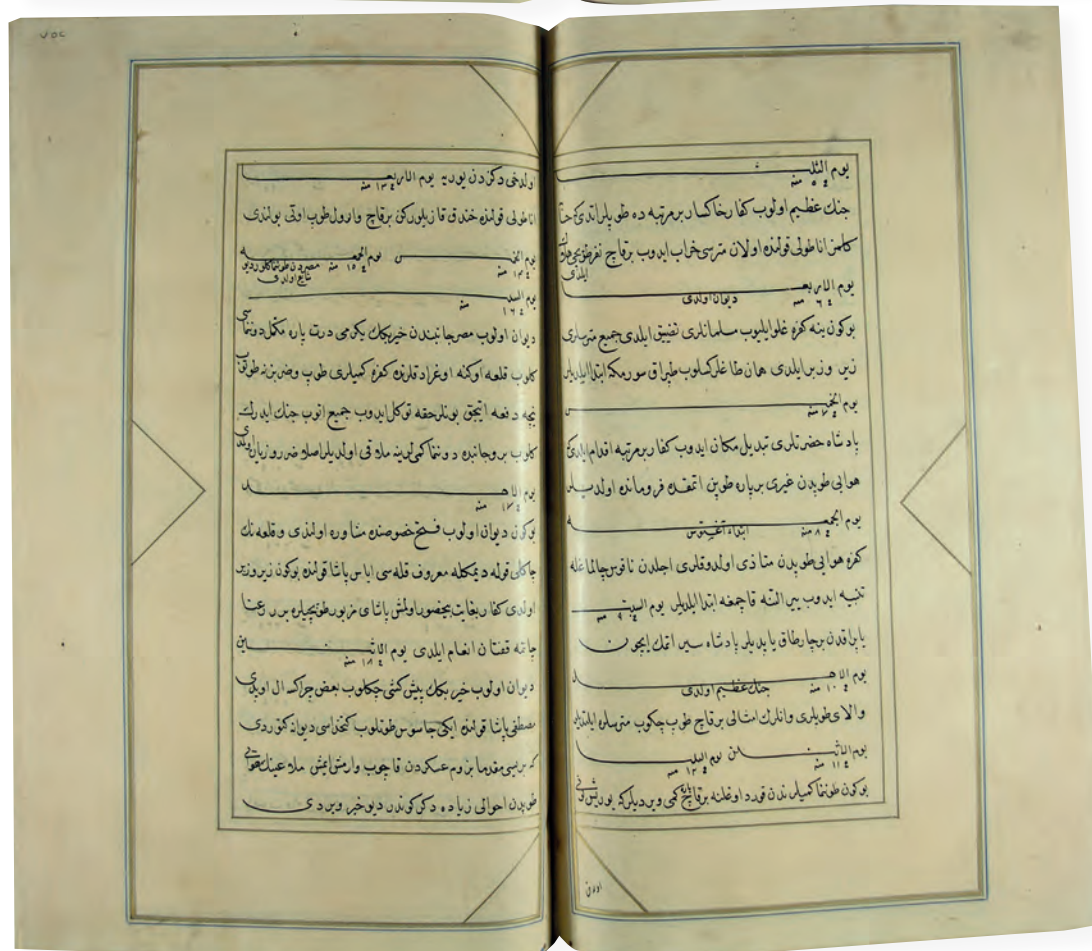 يوم الثلـــث
فى ٥ منه
جنك عظيم اولوب كفار خاكسار بر مرتبه ده طوپلر اتدى كه حتا
كلمز اناطولى قولنده اولان مترسى خراب ايدوب برقاچ نفر طوپجى
ايلدى
يوم الاربعـــا
فى ٦ منه ديوان اولدى
بوكون ينه كفره غلو ايليوب مسلمانلرى تضييق ايلدى جميع مترسلرى
زير وزبر ايلدى همان طاغلر كلوب طپراق سورمكه ابتدا ايلديلر
يوم الخمـــس
فى ٧ منه
پادشاه حضرتلرى تبديل مكان ايدوب كفار بر مرتبه اقدام ايلدى كه
هوايى طوپدن غيرى برپاره طوپن اتمقده فرومانده اولديلر
يوم الجمعـــه
فى ٨ منه ابتداء اغستوس
كفره هوايى طوپدن متاذى اولدوقلرى اجلدن ناقوس چالماغله
تنبيه ايدوب يير التنه قاچمغه ابتدا ايلديلر يوم السبت
فى ٩ منه
ياپراقدن برچارطاق ياپديلر پادشاه سير اتمك ايچون
يوم الاحـــد
فى ١٠ منه جنك عظيم اولدى
والاى طوپلرى وانلرك امثالى برقاچ طوپ چكوب مترسلره ايلتديلر
يوم الاثنـــين يوم الثلث
فى ١١ منه فى ١٢ منه
بوكون طونما كميلرندن قورد اوغلنه برقاچ كمى ويرديلر كه يوريش كونى
اولدخى
اولدخى دكزدن يوريه يوم الاربعـــا
فى ١٣ منه
اناطولى قولنده خندق قازيلوركن برقاچ وارول طوپ اوتى بولندى
يوم الخمـــس يوم الجمعـــه
فى ١٤ منه فى ١٥ منه مصردن طونما كلور ديو
شايع اولدى
يوم السبـــت
فى ١٦ منه
ديوان اولوب مصر جانبندن خيربكك يكرمى درت پاره مكمل دونماسى
كلوب قلعه اوكنه اوغرادقلرنده كفره كميلرى طوپ وضربزنه طوتوب
نيچه دفعه اتيجق بونلر حقه توكل ايدوب جميع اتوب جنك ايدرك
كلوب بروجانبده دونما كميلرينه ملاقى اولديلر اصلا ضرر وزيان اولمدى
يوم الاحـــد
فى ١٧ منه
بوكون ديوان اولوب فتح خصوصنده مشاوره اولندى وقلعه نك
چاكلى قوله ديمكله معروف قله سى اياس پاشا قولنده بوكون زير وزبر
اولدى كفار بغايت بيحضور اولمش پاشاى مزبور طوپچيلره برر رعنا
چاته قفتان انعام ايلدى يوم الاثنـــين
فى ١٨ منه
ديوان اولوب خيربكك پيشكشى چكلوب بعض چراكسه ال اوپدى
مصطفى پاشا قولنده ايكى جاسوس طوتلوب كتخداسى ديوانه كتوردى
كه بريسى مقدما بزوم عسكردن قاچوب وارمش ايمش ملاعينك هوايى
طوپدن احوالى زياده دكركوندر ديو خبر ويردى